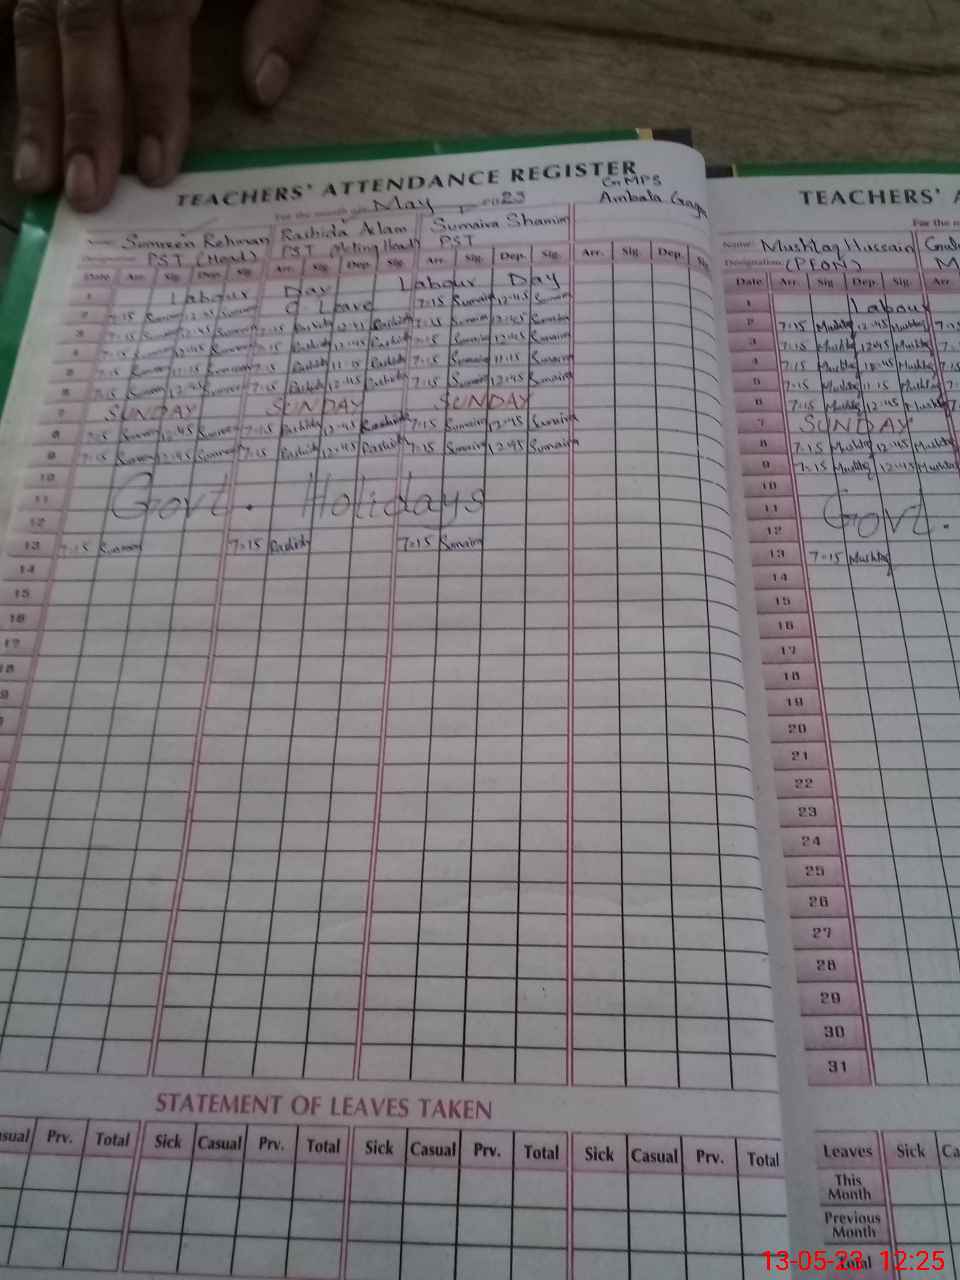 TEACHERS' ATTENDANCE REGISTER
GMPS
For the month of May 2023 Ambala
Sumreen Rehman Rashida Aslam Sumaira Shamim
PST (Head) PST (Acting Head) PST
Date Arr. Sig. Dep. Sig. Arr. Sig. Dep. Sig. Arr. Sig. Dep. Sig. Arr. Sig. Dep. Sig.
1 Labour Day Labour Day
2 7:15 12:45 C Leave 7:15 Sumaira 12:45 Sumaira
3 7:15 12:45 7:15 Rashida Rashida 7:15 Sumaira 12:45 Sumaira
4 7:15 12:45 7:15 Rashida 12:45 Rashida 7:15 Sumaira 12:45 Sumaira
5 7:15 11:15 7:15 Rashida 11:15 Rashida 7:15 Sumaira 11:15 Sumaira
6 7:15 12:45 7:15 Rashida 12:45 Rashida 7:15 Sumaira 12:45 Sumaira
7 SUNDAY SUNDAY SUNDAY
8 7:15 12:45 7:15 Rashida 12:45 Rashida 7:15 Sumaira 12:45 Sumaira
9 7:15 12:45 7:15 Rashida 12:45 Rashida 7:15 Sumaira 12:45 Sumaira
10
11 Govt. Holidays
12
13 7:15 7:15 Rashida 7:15 Sumaira
14
15
16
17
18
9
STATEMENT OF LEAVES TAKEN
Prv. Total Sick Casual Prv. Total Sick Casual Prv. Total Sick Casual Prv. Total
TEACHERS'
For the
Name: Mushtaq Hussain
Designation: (PEON)
Date Arr. Sig. Dep. Sig. Arr
1 Labour
2 7:15 Mushtaq 12:45 Mushtaq
3 7:15 Mushtaq 12:45 Mushtaq
4 7:15 Mushtaq 12:45 Mushtaq
5 7:15 Mushtaq 11:15 Mushtaq
6 7:15 Mushtaq 12:45 Mushtaq
7 SUNDAY
8 7:15 Mushtaq 12:45 Mushtaq
9 7:15 Mushtaq 12:45 Mushtaq
10
11 Govt.
12
13 7:15 Mushtaq
14
15
16
17
18
19
20
21
22
23
24
25
26
27
28
29
30
31
Leaves Sick
This Month
Previous Month
Total
13-05-23 12:25